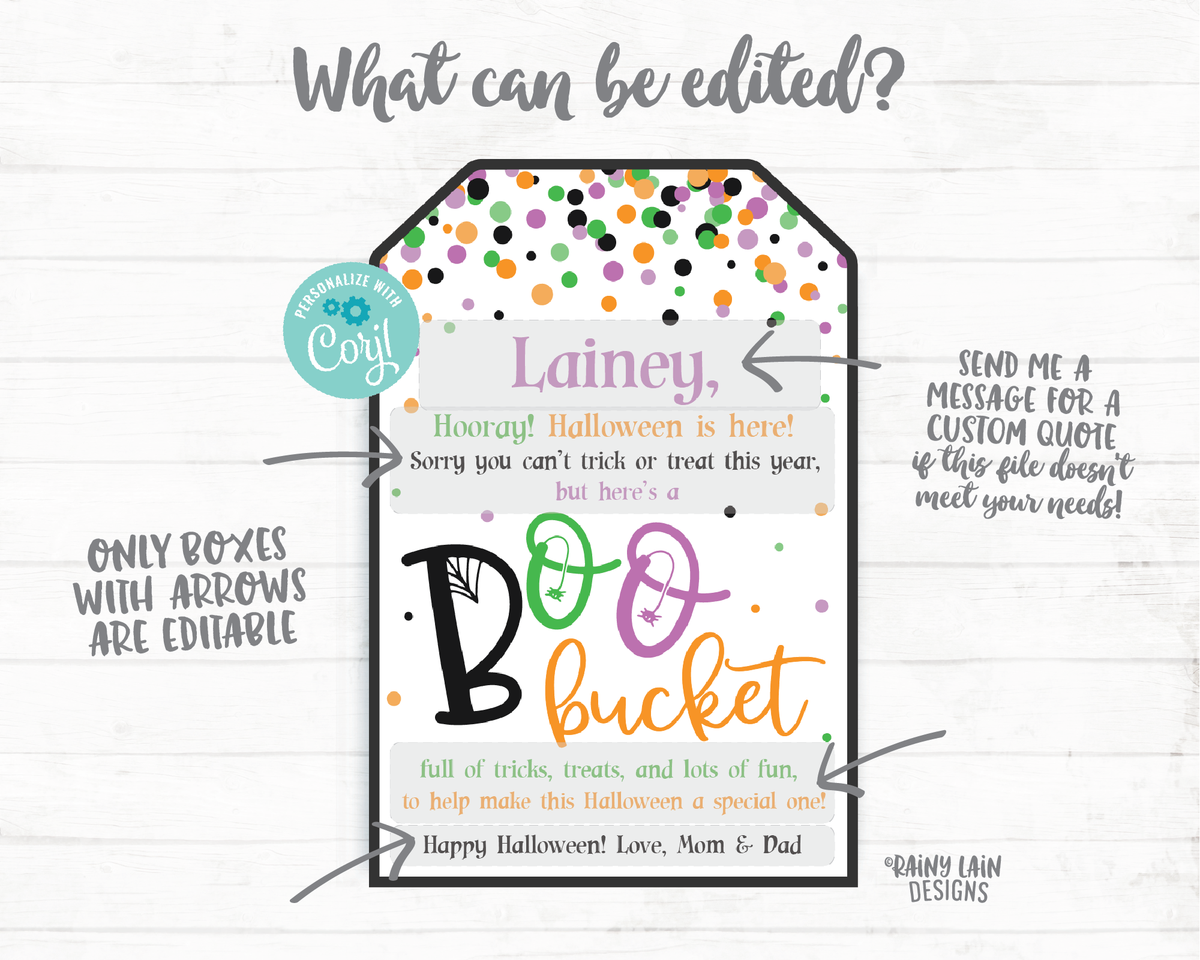 What can be edited?
PERSONALIZE WITH
Corjl
Lainey,
Hooray! Halloween is here!
Sorry you can't trick or treat this year,
but here's a
BOO
bucket
full of tricks, treats, and lots of fun,
to help make this Halloween a special one!
Happy Halloween! Love, Mom & Dad
ONLY BOXES
WITH ARROWS
ARE EDITABLE
SEND ME A
MESSAGE FOR A
CUSTOM QUOTE
if this file doesn't
meet your needs!
©RAINY LAIN
DESIGNS